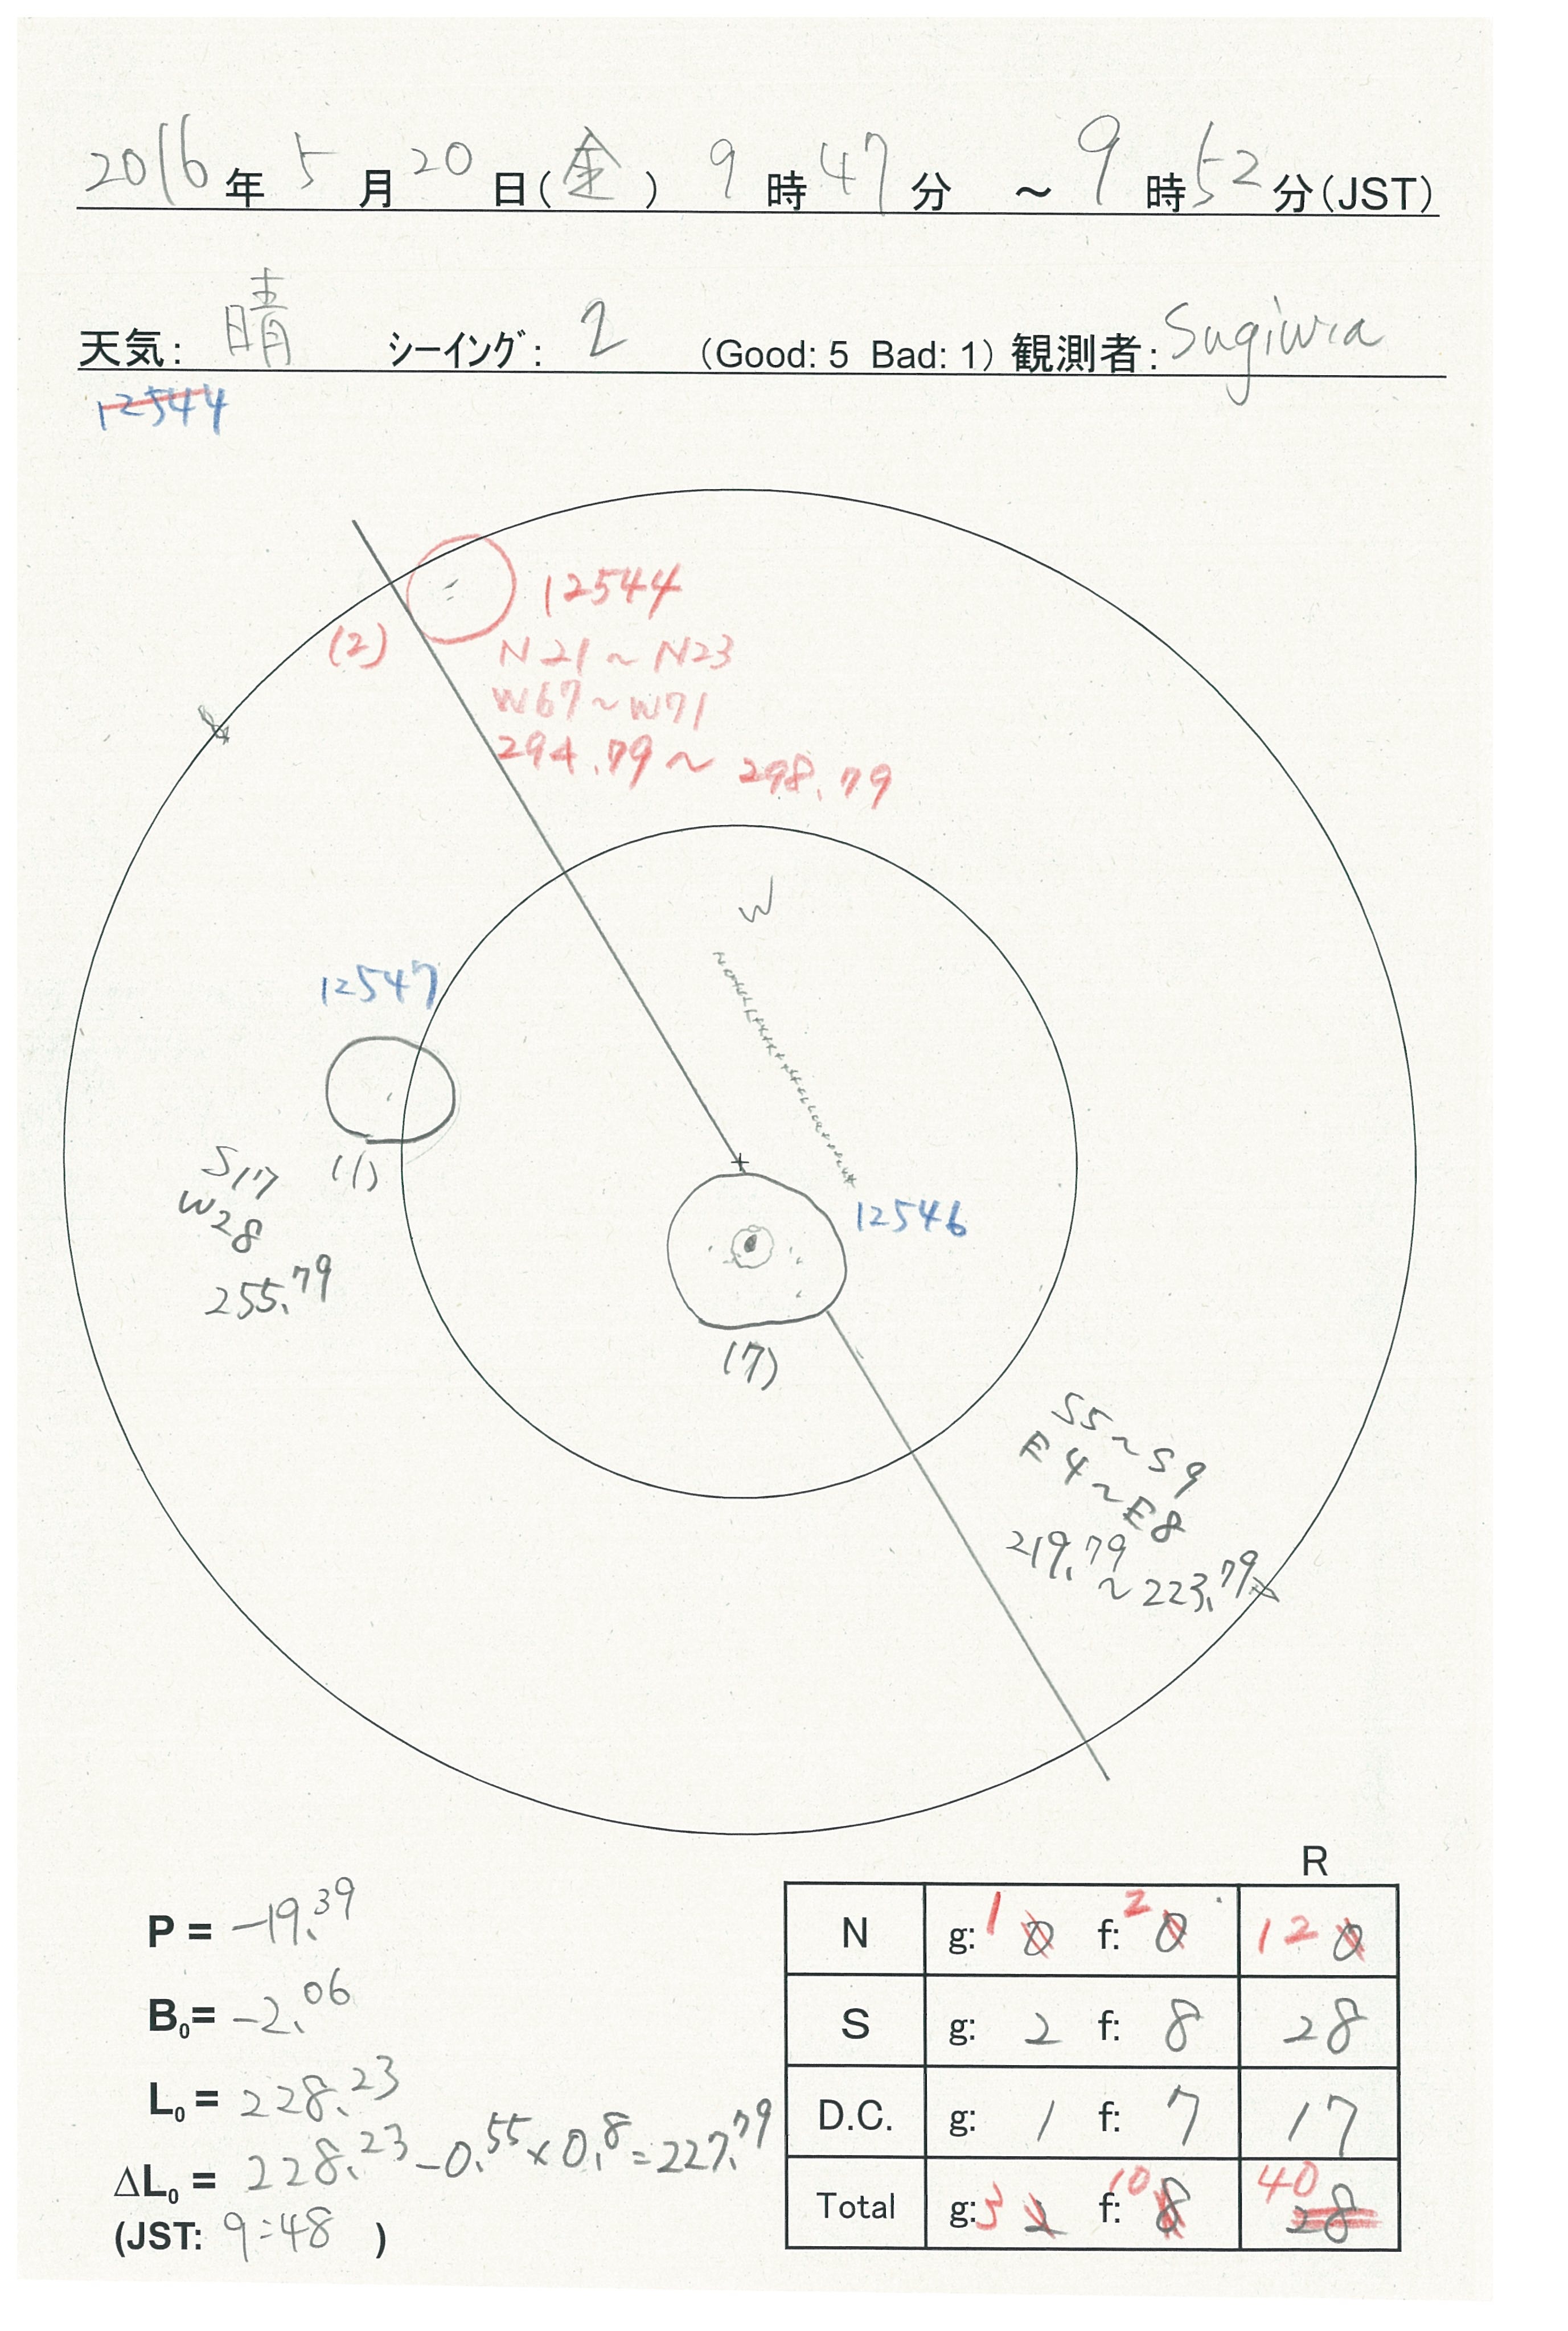 2016年 5月20日(金) 9時47分 ～ 9時52分(JST)
天気: 晴 シーイング: 2 (Good: 5 Bad: 1) 観測者: Sugiura
12544
12544
(2)
N21～N23
W67～W71
294.79～298.79
W
12547
(1)
S17
W28
255.79
12546
(7)
S5～S9
E4～E8
219.79
～223.79
P = -19.39
B0= -2.06
L0 = 228.23
ΔL0 = 228.23-0.55×0.8=227.79
(JST: 9:48 )
R
N g: 1 0 f: 2 0 12 0
S g: 2 f: 8 28
D.C. g: 1 f: 7 17
Total g: 3 2 f: 10 8 40 28